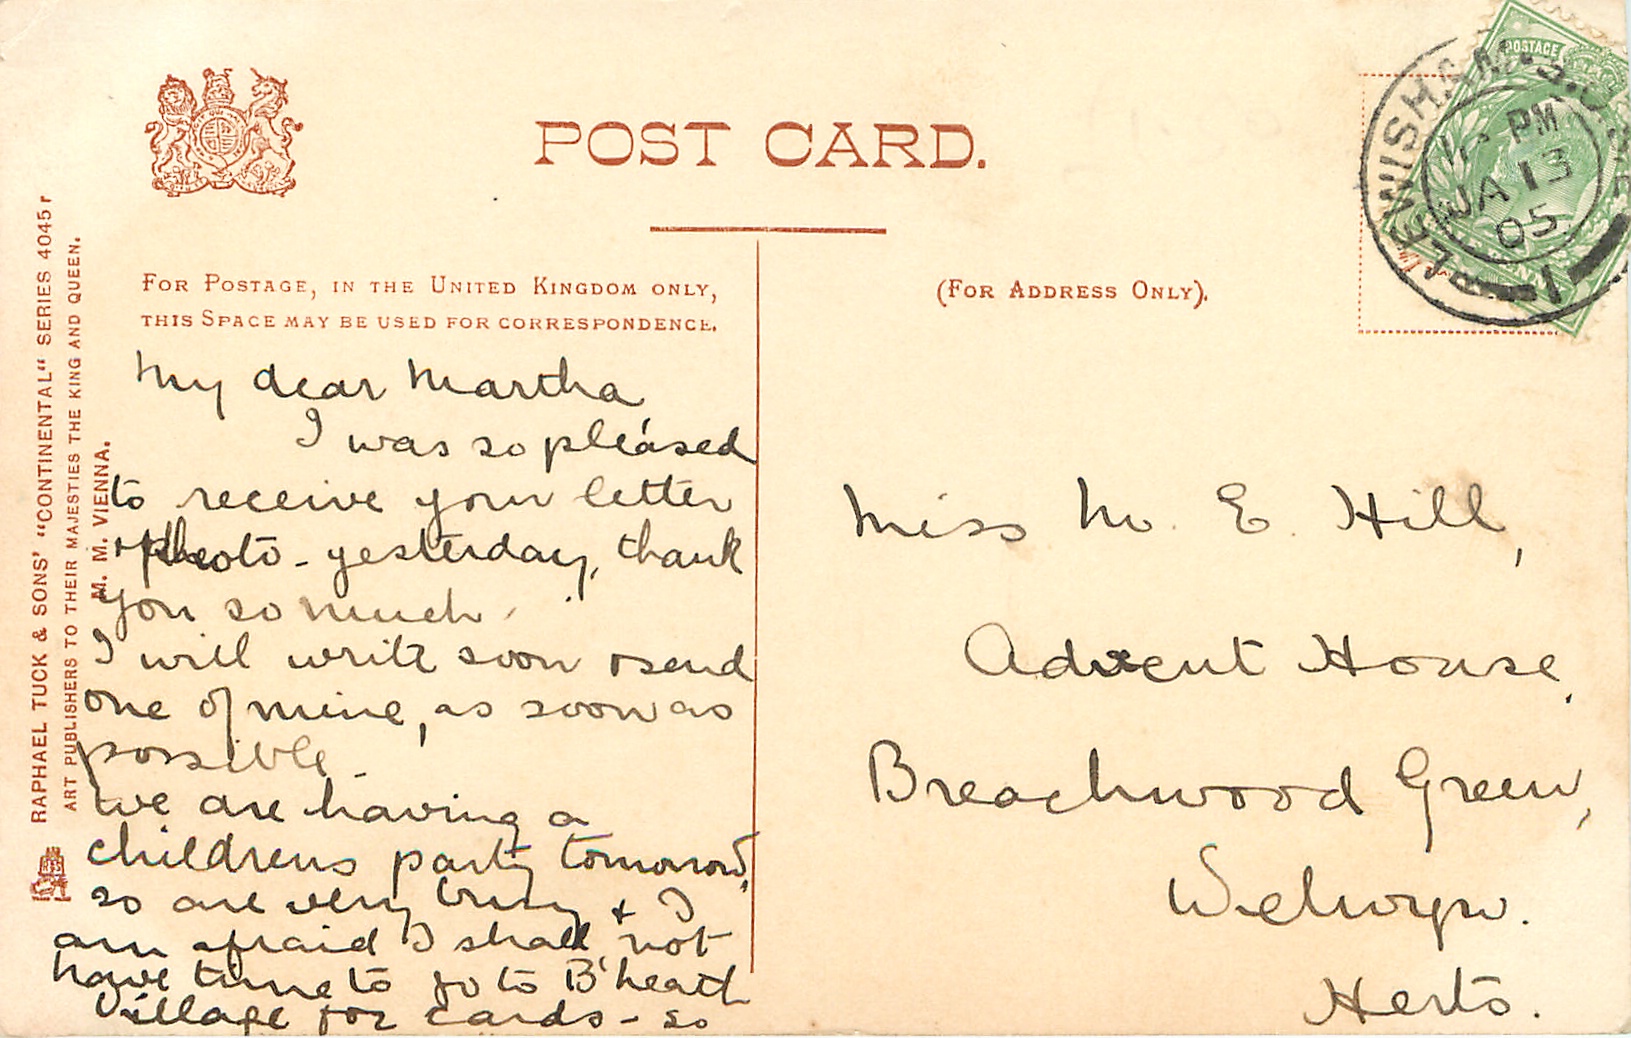 POST CARD.
FOR POSTAGE, IN THE UNITED KINGDOM ONLY,
THIS SPACE MAY BE USED FOR CORRESPONDENCE.
(FOR ADDRESS ONLY).
RAPHAEL TUCK & SONS' "CONTINENTAL" SERIES 4045 r
ART PUBLISHERS TO THEIR MAJESTIES THE KING AND QUEEN.
M. M. VIENNA.
POSTAGE
LEWISHAM. S.O.
PM
JA 13
05
1
My dear Martha
I was so pleased
to receive your letter
+ photo - yesterday, thank
you so much.
I will write soon + send
one of mine, as soon as
possible.
We are having a
childrens party tomorrow,
so are very busy + I
am afraid I shall not
have time to go to B'heath
Village for cards - so
Miss M. E. Hill,
Advent House,
Breachwood Green,
Welwyn.
Herts.